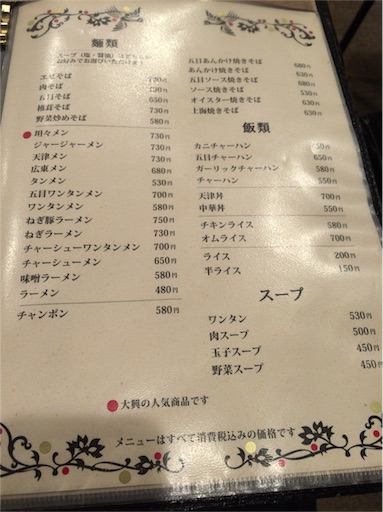 麺類
スープ（塩・醤油）はどちらか
お好みでお選びいただけます
エビそば
肉そば
五目そば 650円
椎茸そば 730円
野菜炒めそば 580円
坦々メン 730円
ジャージャーメン 730円
天津メン 730円
広東メン 680円
タンメン 530円
五目ワンタンメン 700円
ワンタンメン 580円
ねぎ豚ラーメン 750円
ねぎラーメン 730円
チャーシューワンタンメン 700円
チャーシューメン 650円
味噌ラーメン 580円
ラーメン 480円
チャンポン 580円
五目あんかけ焼きそば 680円
あんかけ焼きそば 630円
五目ソース焼きそば 680円
ソース焼きそば 530円
オイスター焼きそば 680円
上海焼きそば 630円
飯類
カニチャーハン
五目チャーハン 650円
ガーリックチャーハン 580円
チャーハン 550円
天津丼 700円
中華丼 550円
チキンライス 580円
オムライス 700円
ライス 200円
半ライス 150円
スープ
ワンタン 530円
肉スープ 500円
玉子スープ 450円
野菜スープ 450円
大興の人気商品です
メニューはすべて消費税込みの価格です